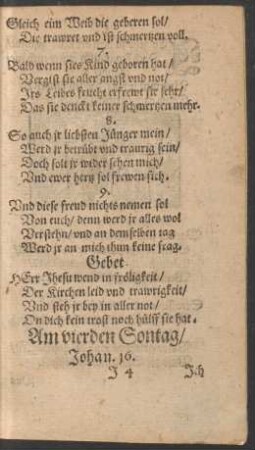 Gleich eim Weib die geberen sol/
Die trawret vnd ist schmertzen voll.
7.
Bald wenn sies Kind geboren hat/
Vergist sie aller angst vnd not/
Irs Leibes frucht erfrewt sie sehr/
Das sie denckt keiner schmertzen mehr.
8.
So auch jr liebsten Jünger mein/
Werd jr betrübt vnd traurig sein/
Doch solt jr wider sehen mich/
Vnd ewer hertz sol frewen sich.
9.
Vnd diese frend nichts nemen sol
Von euch/ denn werd jr alles wol
Verstehn/ vnd an demselben tag
Werd jr an mich thun keine frag.
Gebet.
HErr Jhesu wend in fröligkeit/
Der Kirchen leid vnd trawrigkeit/
Vnd steh jr bey in aller not/
On dich kein trost noch hülff sie hat.
Am vierden Sontag/
Johan. 16.
J 4 Jch